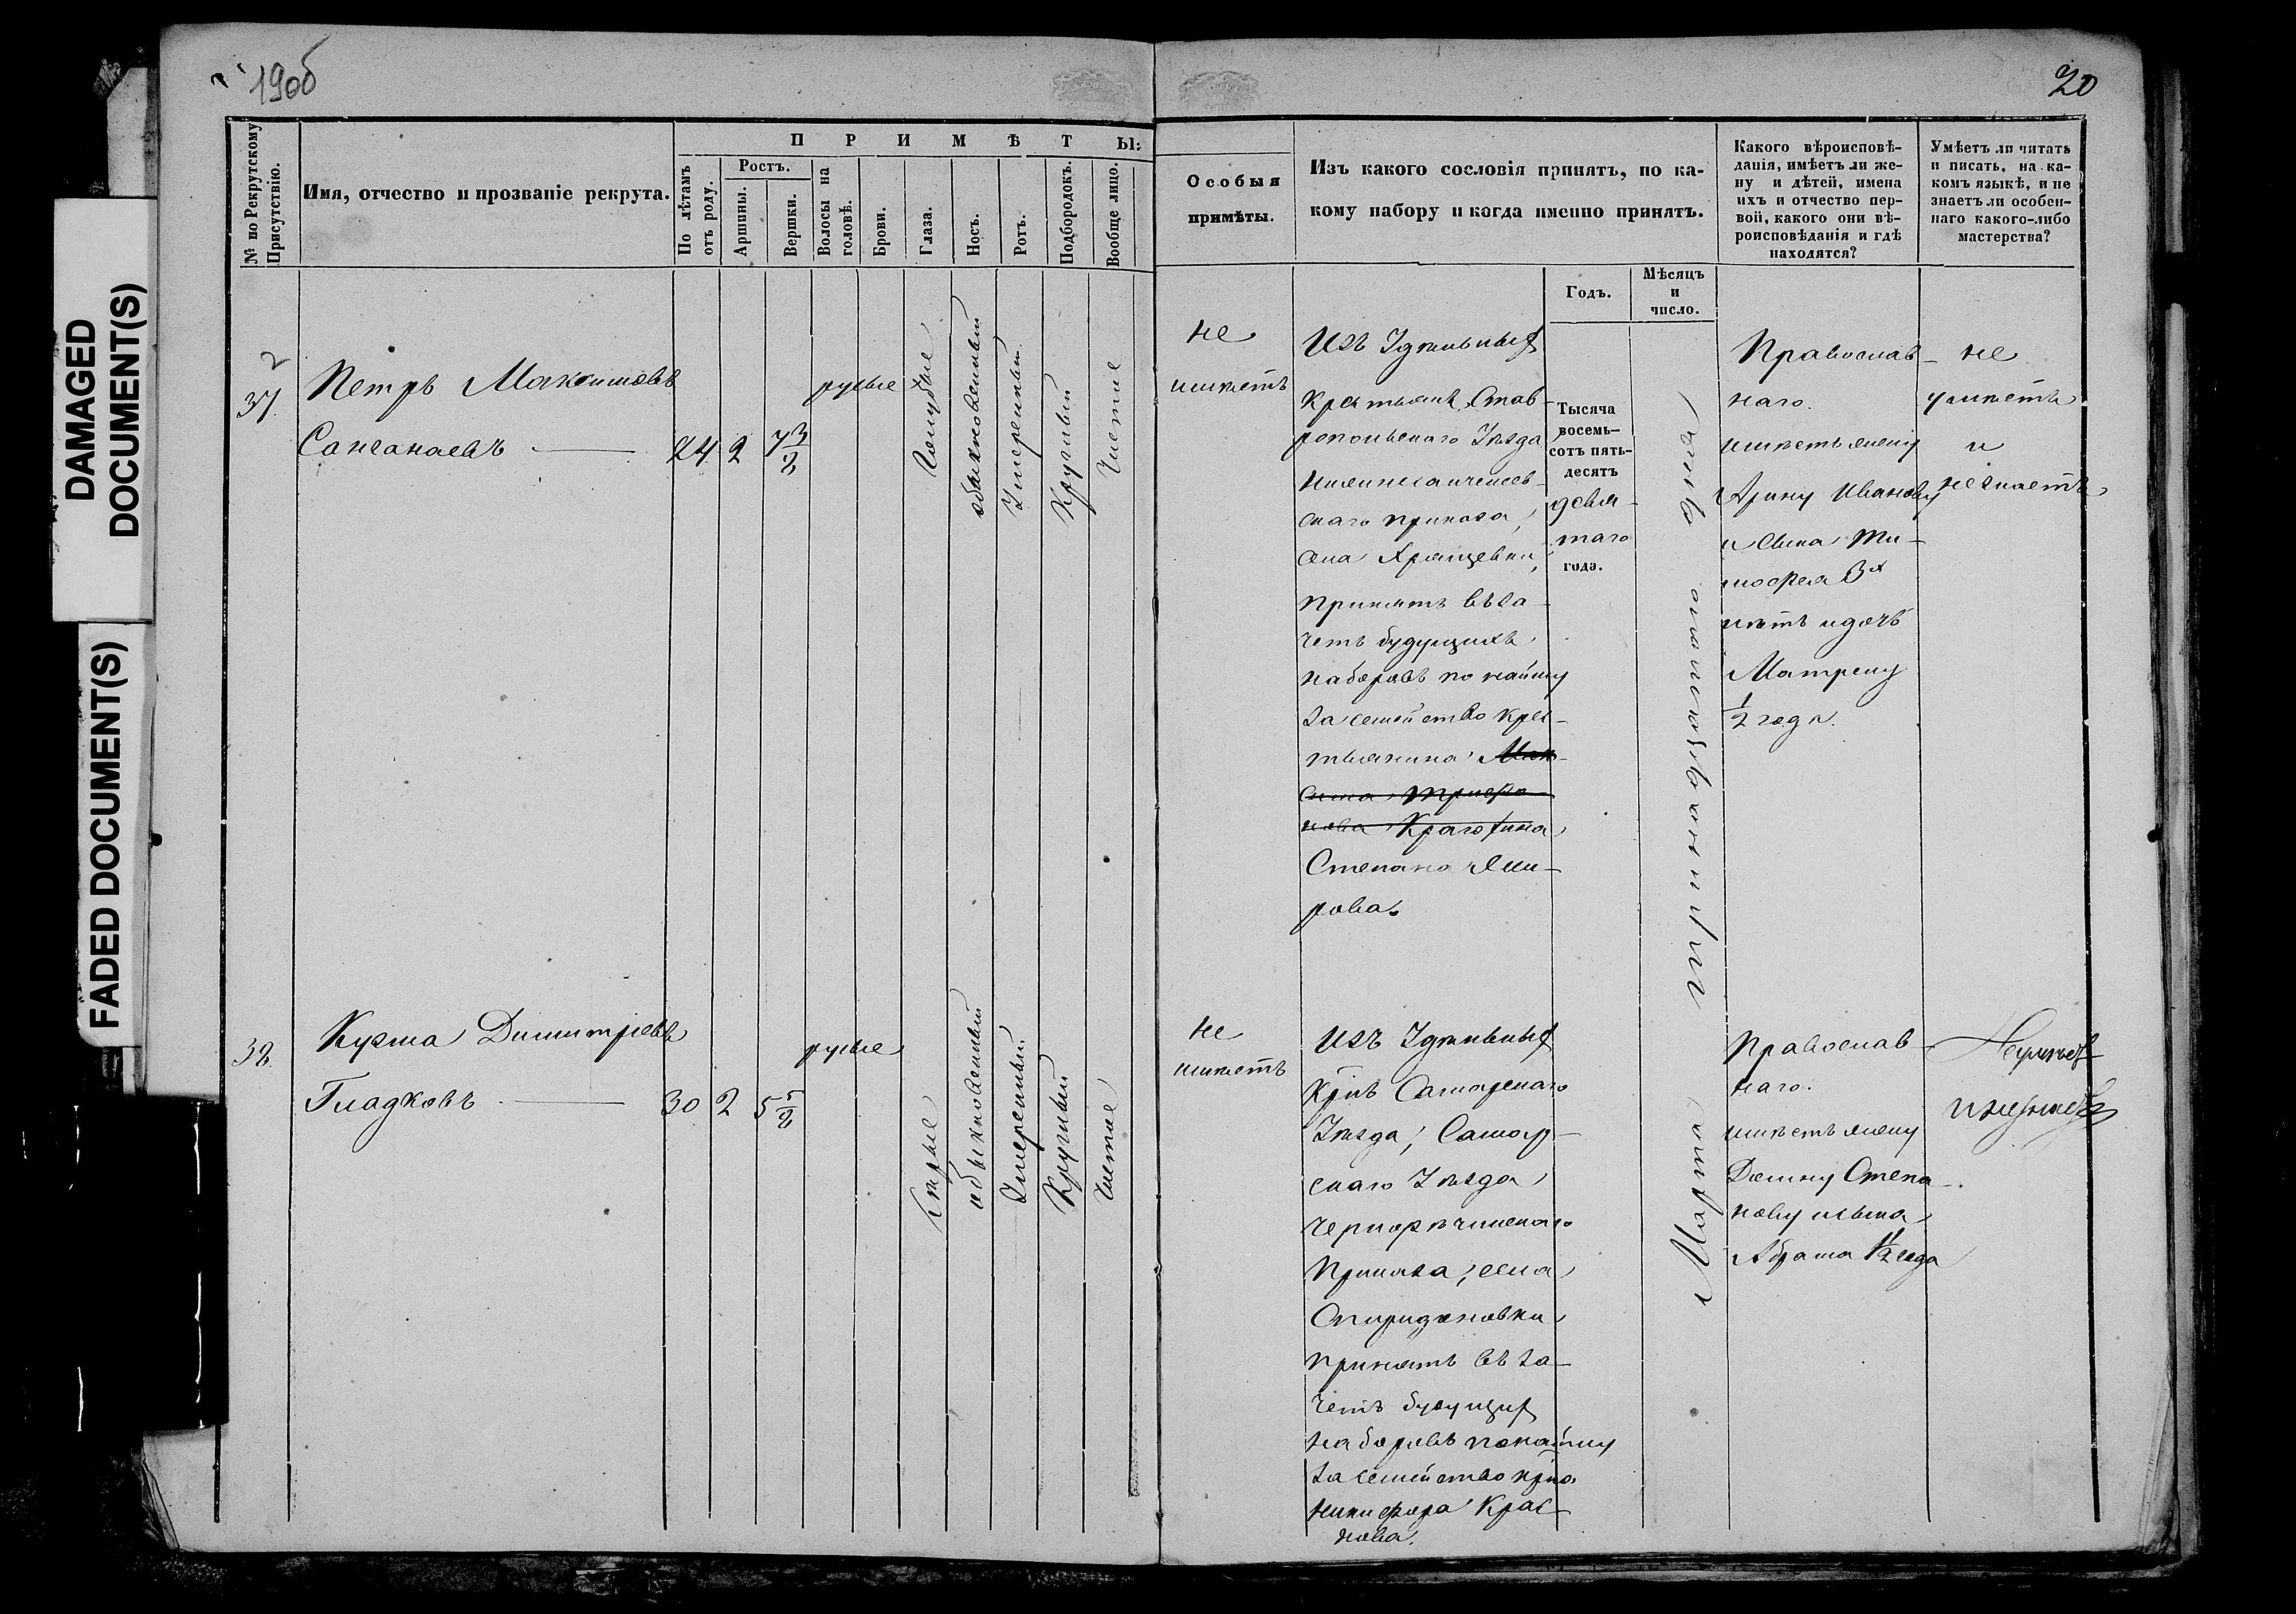 DAMAGED
DOCUMENT(S)
FADED DOCUMENT(S)
190б
20
№ по Рекрутскому
Присутствію.
Имя, отчество и прозваніе рекрута.
П Р И М Ѣ Т Ы:
По лѣтамъ
отъ роду.
Ростъ.
Аршины.
Вершки.
Волосы на
головѣ.
Брови.
Глаза.
Носъ.
Ротъ.
Подбородокъ.
Вообще лицо.
Особыя
примѣты.
Изъ какого сословія принятъ, по ка-
кому набору и когда именно принятъ.
Годъ.
Мѣсяцъ
и
число.
Какого вѣроисповѣ-
данія, имѣетъ ли же-
ну и дѣтей, имена
ихъ и отчество пер-
вой, какого они вѣ-
роисповѣданія и гдѣ
находятся?
Умѣетъ ли читать
и писать, на ка-
комъ языкѣ, и не
знаетъ ли особен-
наго какого-либо
мастерства?
37
Петръ Максимовъ
Санганаевъ
24 2 7 3/8
русые
Голубые
обыкновенный
Умеренный
Круглый
Чистые
не
имѣетъ
Изъ Удѣльныхъ
Крестьянъ Став-
ропольскаго Уѣзда
скаго приказа,
села Хрящевки,
принятъ въ за-
четъ будущихъ
наборовъ по найму
за семейство крес-
тьянина
Степана Яли-
рова.
Тысяча
восемь-
сотъ пять-
десятъ
девя-
таго
года.
Марта двадцать
день
Православ-
наго.
имѣетъ жену
Арину Иванову
и сына Ти-
мофея 3х
лѣтъ и дочь
Матрену
1/2 года.
не
умѣетъ
и
не знаетъ
38
Кузма Димитріевъ
Гладковъ
30 2 5 5/8
русые
Сѣрые
обыкновенный
Умеренный
Круглый
Чистое
не
имѣетъ
Изъ Удѣльныхъ
Крнъ Самарскаго
Уѣзда, Самар-
скаго Уѣзда
Чернорѣчинскаго
Приказа, села
Спиридоновки
принятъ въ за-
четъ будущихъ
наборовъ по найму
за семейство крна
Никифора Крас-
нова.
Православ-
наго.
имѣетъ жену
Домну Степа-
нову и сына
Абрама 1 1/2 года
Неумѣетъ
и незнаетъ